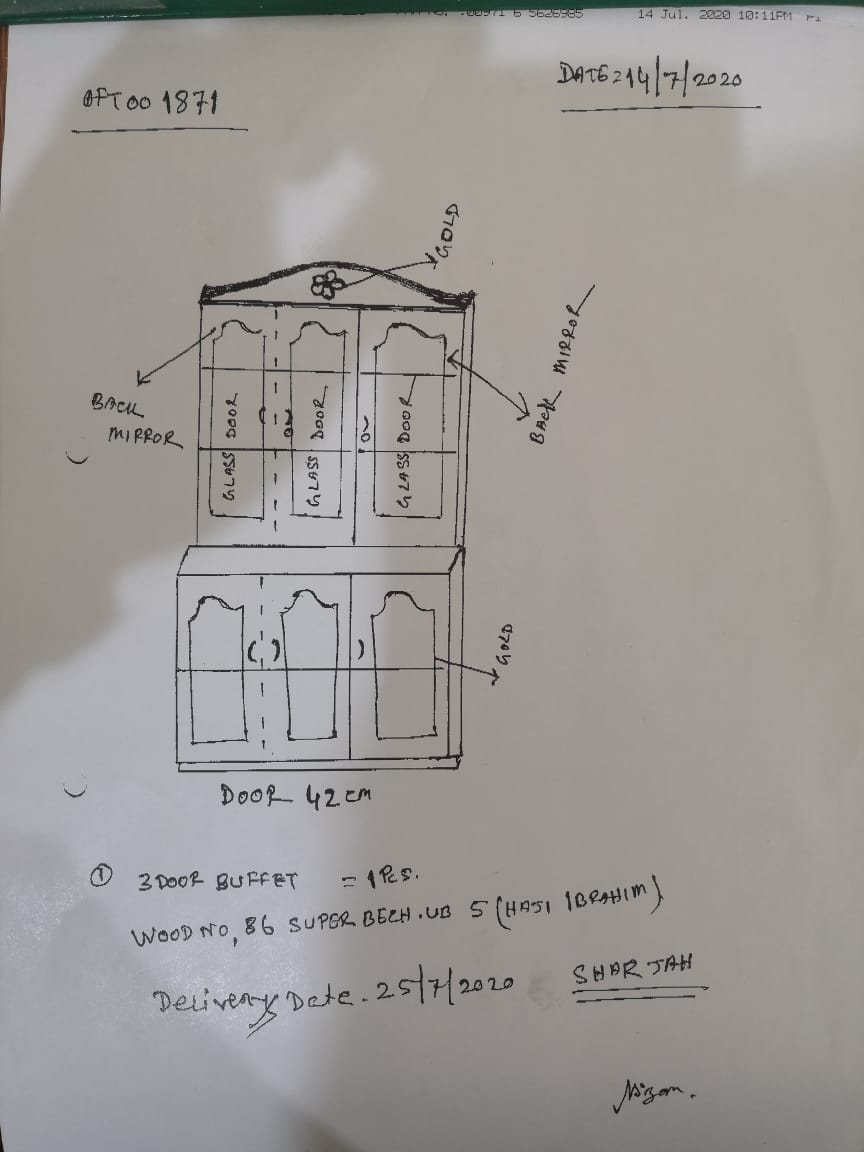 14 Jul. 2020 10:11PM P1
OFT00 1871
DATE = 14/7/2020
GOLD
BACK MIRROR
BACK
MIRROR
GLASS DOOR
GLASS DOOR
GLASS DOOR
GOLD
DOOR 42 CM
① 3 DOOR BUFFET = 1 PCS.
WOOD NO, 86 SUPER BECH. UB 5 (HAJI IBRAHIM)
Delivery Date. 25/7/2020 SHARJAH
Nizam.